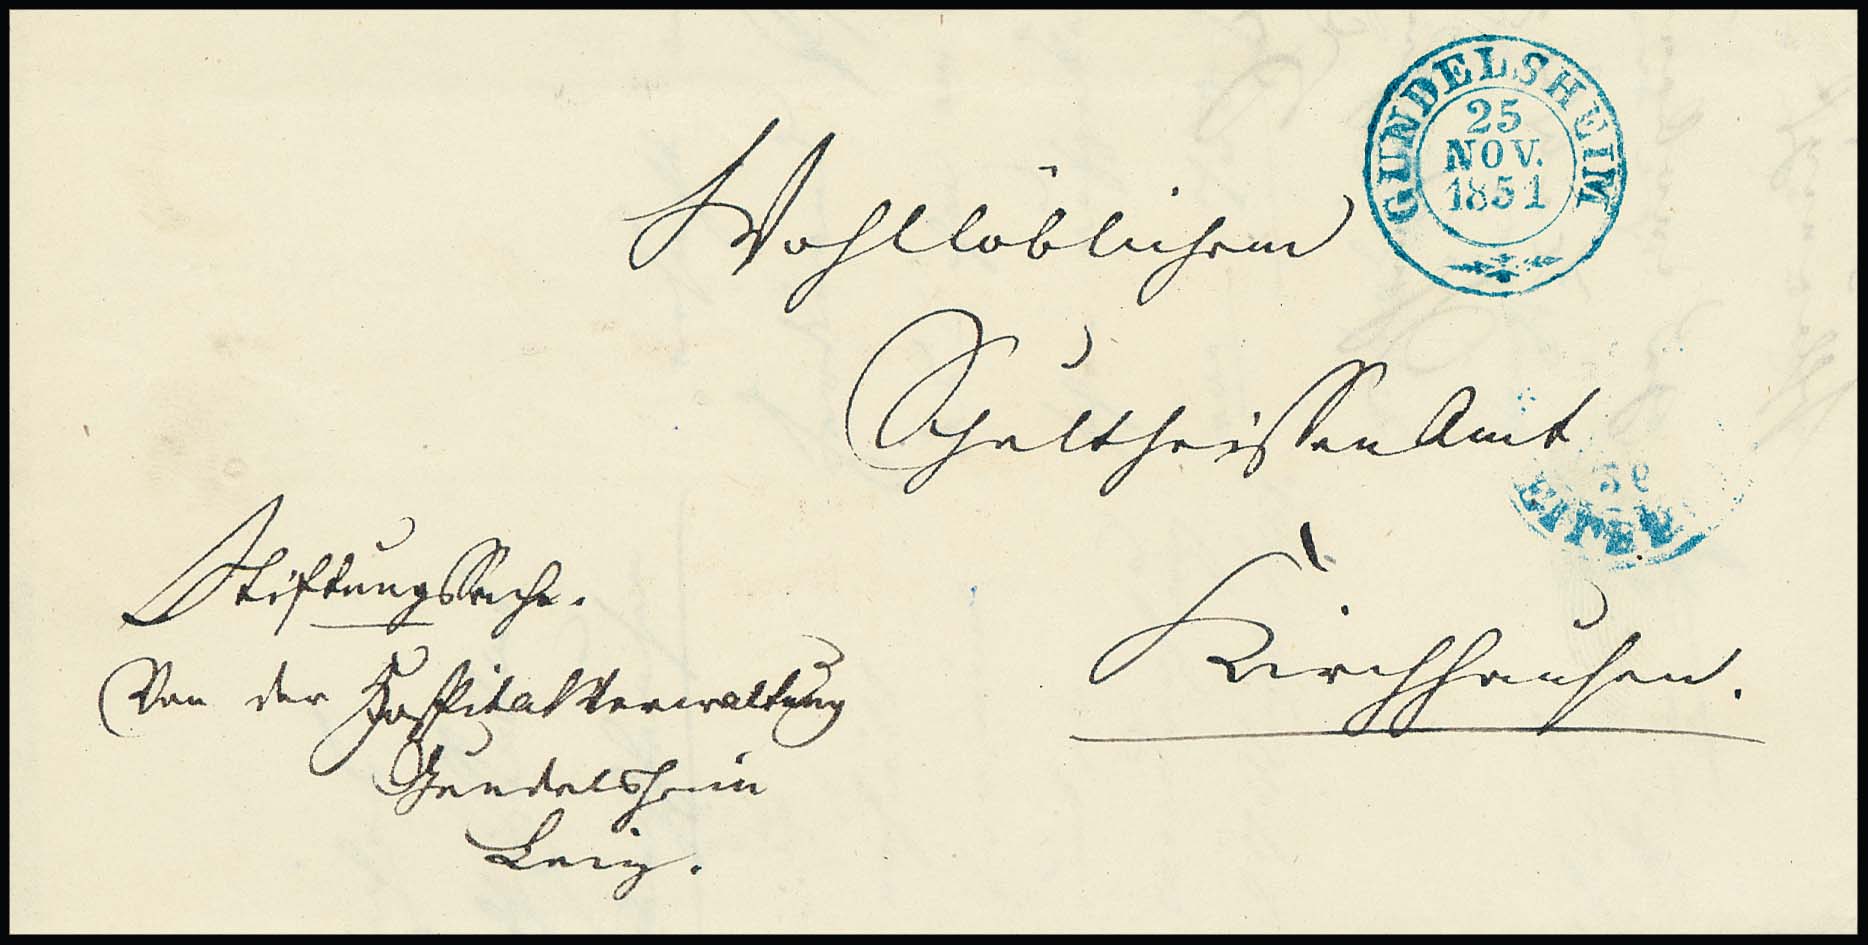 GUNDELSHEIM
25
NOV.
1851
Wohllöblichem
Schultheissen Amt
Kirchhausen.
Stiftungssache.
Von der Hospitalverwaltung
Gundelsheim